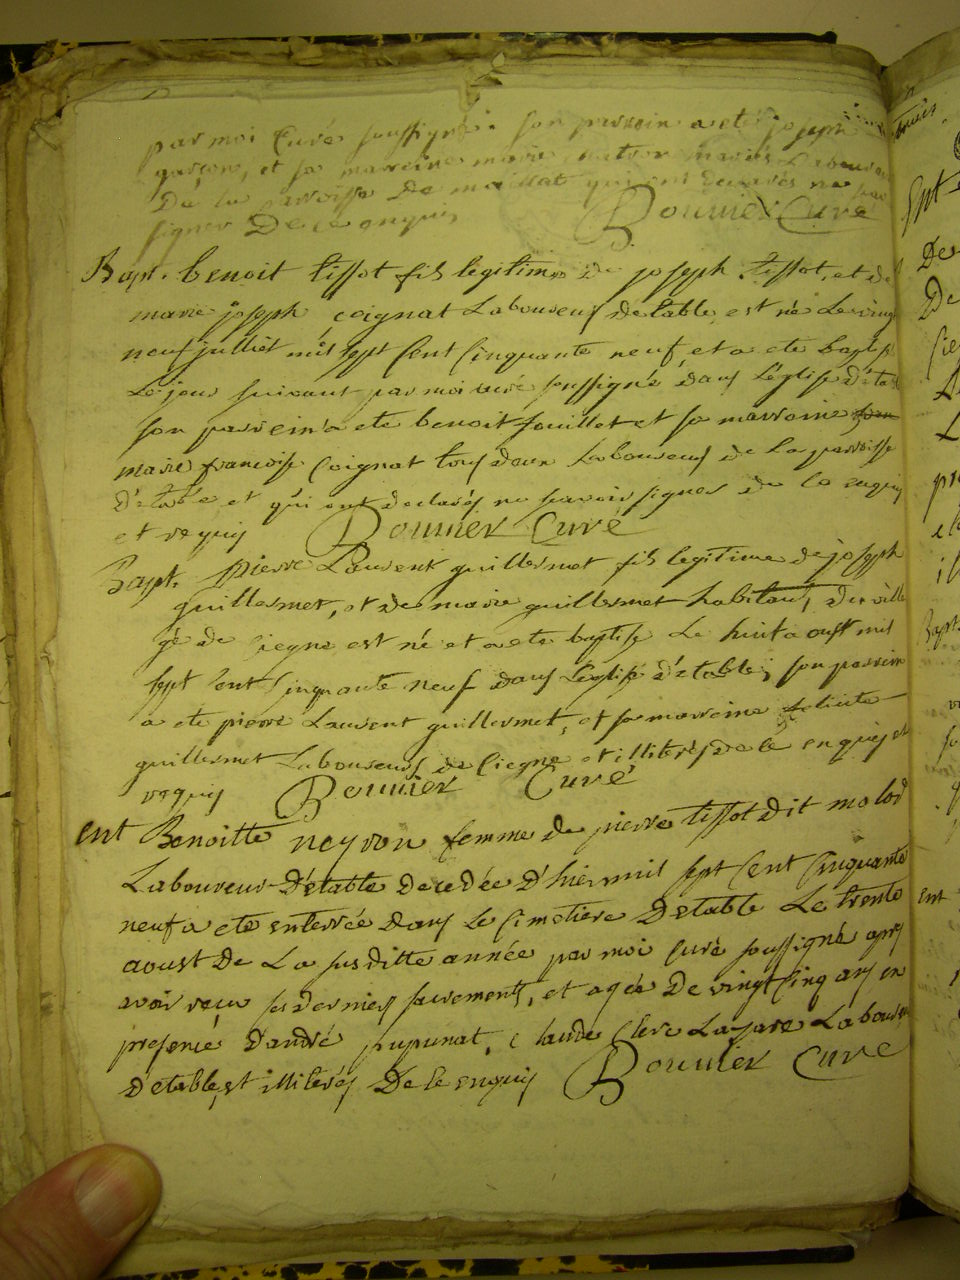 par moi Curé soussigné. son parrein a eté joseph
garçon, et sa marreine marie mariés Laboureurs
De la parroisse De maillat qui ont declarés ne
signer De ce enquis Bouvier Curé
Bapt. benoit tissot fils legitime de joseph tissot, et de
marie joseph coignat Laboureurs detable est né Le vingt
neuf julliet mil sept Cent Cinquante neuf, et a ete baptisé
Le jour suivant par moi curé soussigné dans L'église d'étable
son parrein a ete benoit jouillet et sa marreine
marie francoise Coignat tous deux Laboureurs de La parroisse
d'étable et qui ont declarés ne savoir signer de ce enquis
et requis Bouvier Curé
Bapt. pierre Laurent guillermet fils legitime de joseph
guillermet, et de marie guillermet habitants, du villa
ge de Ciegne est né et a ete baptisé Le huit aoust mil
sept Cent Cinquante neuf dans L'église d'étable, son parrein
a ete pierre Laurent guillermet, et sa marreine felicite
guillermet Laboureurs de Ciegne et illitérés de ce enquis et
requis Bouvier Curé
Ent Benoitte neyron femme de pierre tissot dit molod
Laboureur D'étable decedée D'hier mil sept Cent Cinquante
neuf a ete enterrée Dans Le Cimetière Detable Le trente
aoust De La susditte année par moi Curé soussigné apres
avoir reçu ses derniers sacrements, et agée De vingt Cinq ans en
présence D'andré pupunat, Claude Clerc Lazare Laboureurs
D'étable, et illiterés De ce enquis Bouvier Curé